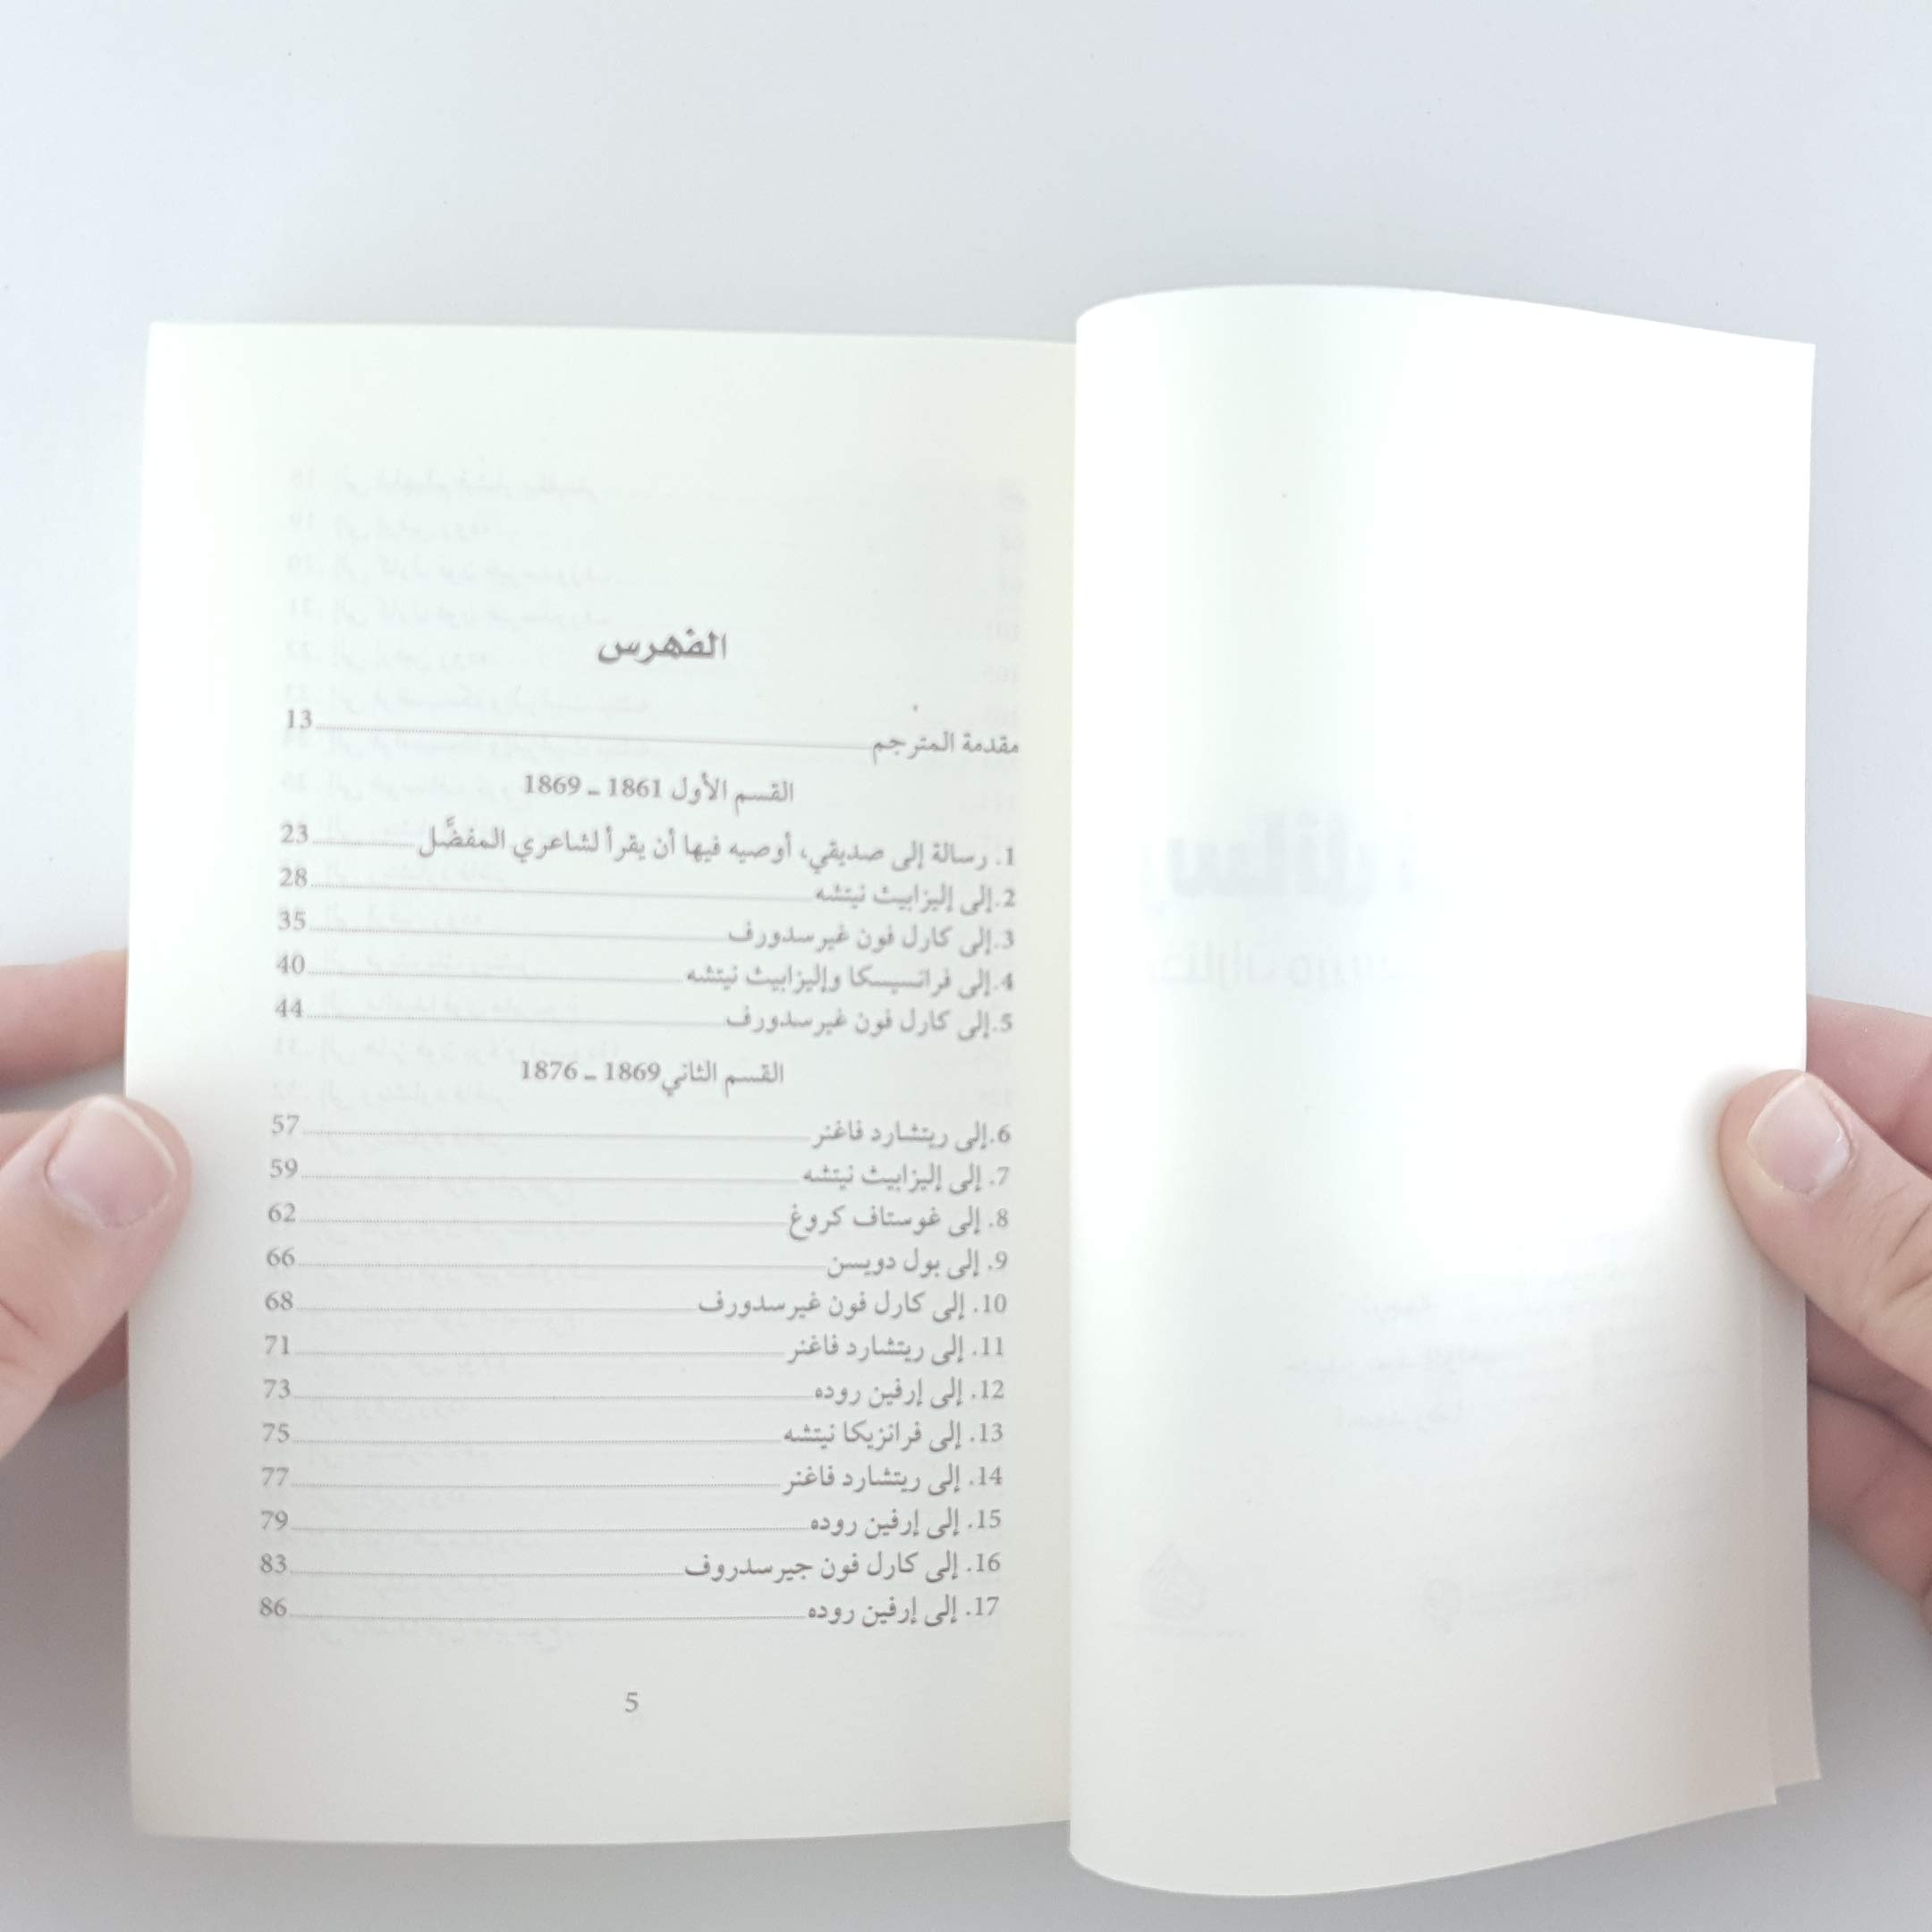 الفهرس
مقدمة المترجم 13
القسم الأول 1861 ـ 1869
1. رسالة إلى صديقي، أوصيه فيها أن يقرأ لشاعري المفضَّل 23
2.إلى إليزابيث نيتشه 28
3.إلى كارل فون غيرسدورف 35
4.إلى فرانسيسكا وإليزابيث نيتشه 40
5.إلى كارل فون غيرسدورف 44
القسم الثاني1869 ـ 1876
6.إلى ريتشارد فاغنر 57
7. إلى إليزابيث نيتشه 59
8. إلى غوستاف كروغ 62
9. إلى بول دويسن 66
10. إلى كارل فون غيرسدورف 68
11. إلى ريتشارد فاغنر 71
12. إلى إرفين روده 73
13. إلى فرانزيكا نيتشه 75
14. إلى ريتشارد فاغنر 77
15. إلى إرفين روده 79
16. إلى كارل فون جيرسدروف 83
17. إلى إرفين روده 86
5